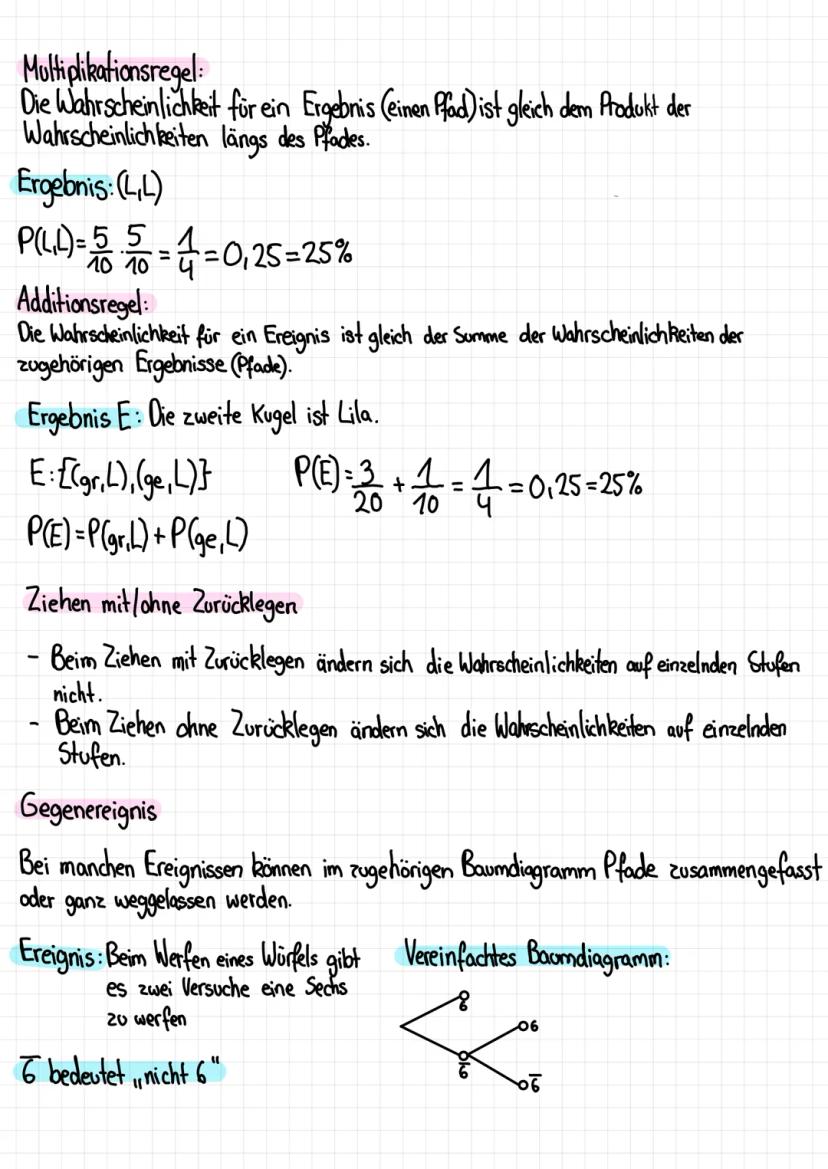 Multiplikationsregel:
Die Wahrscheinlichkeit für ein Ergebnis (einen Pfad) ist gleich dem Produkt der
Wahrscheinlichkeiten längs des Pfades.
Ergebnis: (L,L)
P(L,L)= 5/10 · 5/10 = 1/4 = 0,25 = 25%
Additionsregel:
Die Wahrscheinlichkeit für ein Ereignis ist gleich der Summe der Wahrscheinlichkeiten der
zugehörigen Ergebnisse (Pfade).
Ergebnis E: Die zweite Kugel ist Lila.
E:{(gr,L),(ge,L)} P(E)= 3/20 + 1/10 = 1/4 = 0,25 = 25%
P(E) = P(gr,L) + P(ge,L)
Ziehen mit/ohne Zurücklegen
- Beim Ziehen mit Zurücklegen ändern sich die Wahrscheinlichkeiten auf einzelnden Stufen
nicht.
- Beim Ziehen ohne Zurücklegen ändern sich die Wahrscheinlichkeiten auf einzelnden
Stufen.
Gegenereignis
Bei manchen Ereignissen können im zugehörigen Baumdiagramm Pfade zusammengefasst
oder ganz weggelassen werden.
Ereignis: Beim Werfen eines Würfels gibt
es zwei Versuche eine Sechs
zu werfen
6̅ bedeutet „nicht 6"
Vereinfachtes Baumdiagramm:
6
6
6̅
6̅